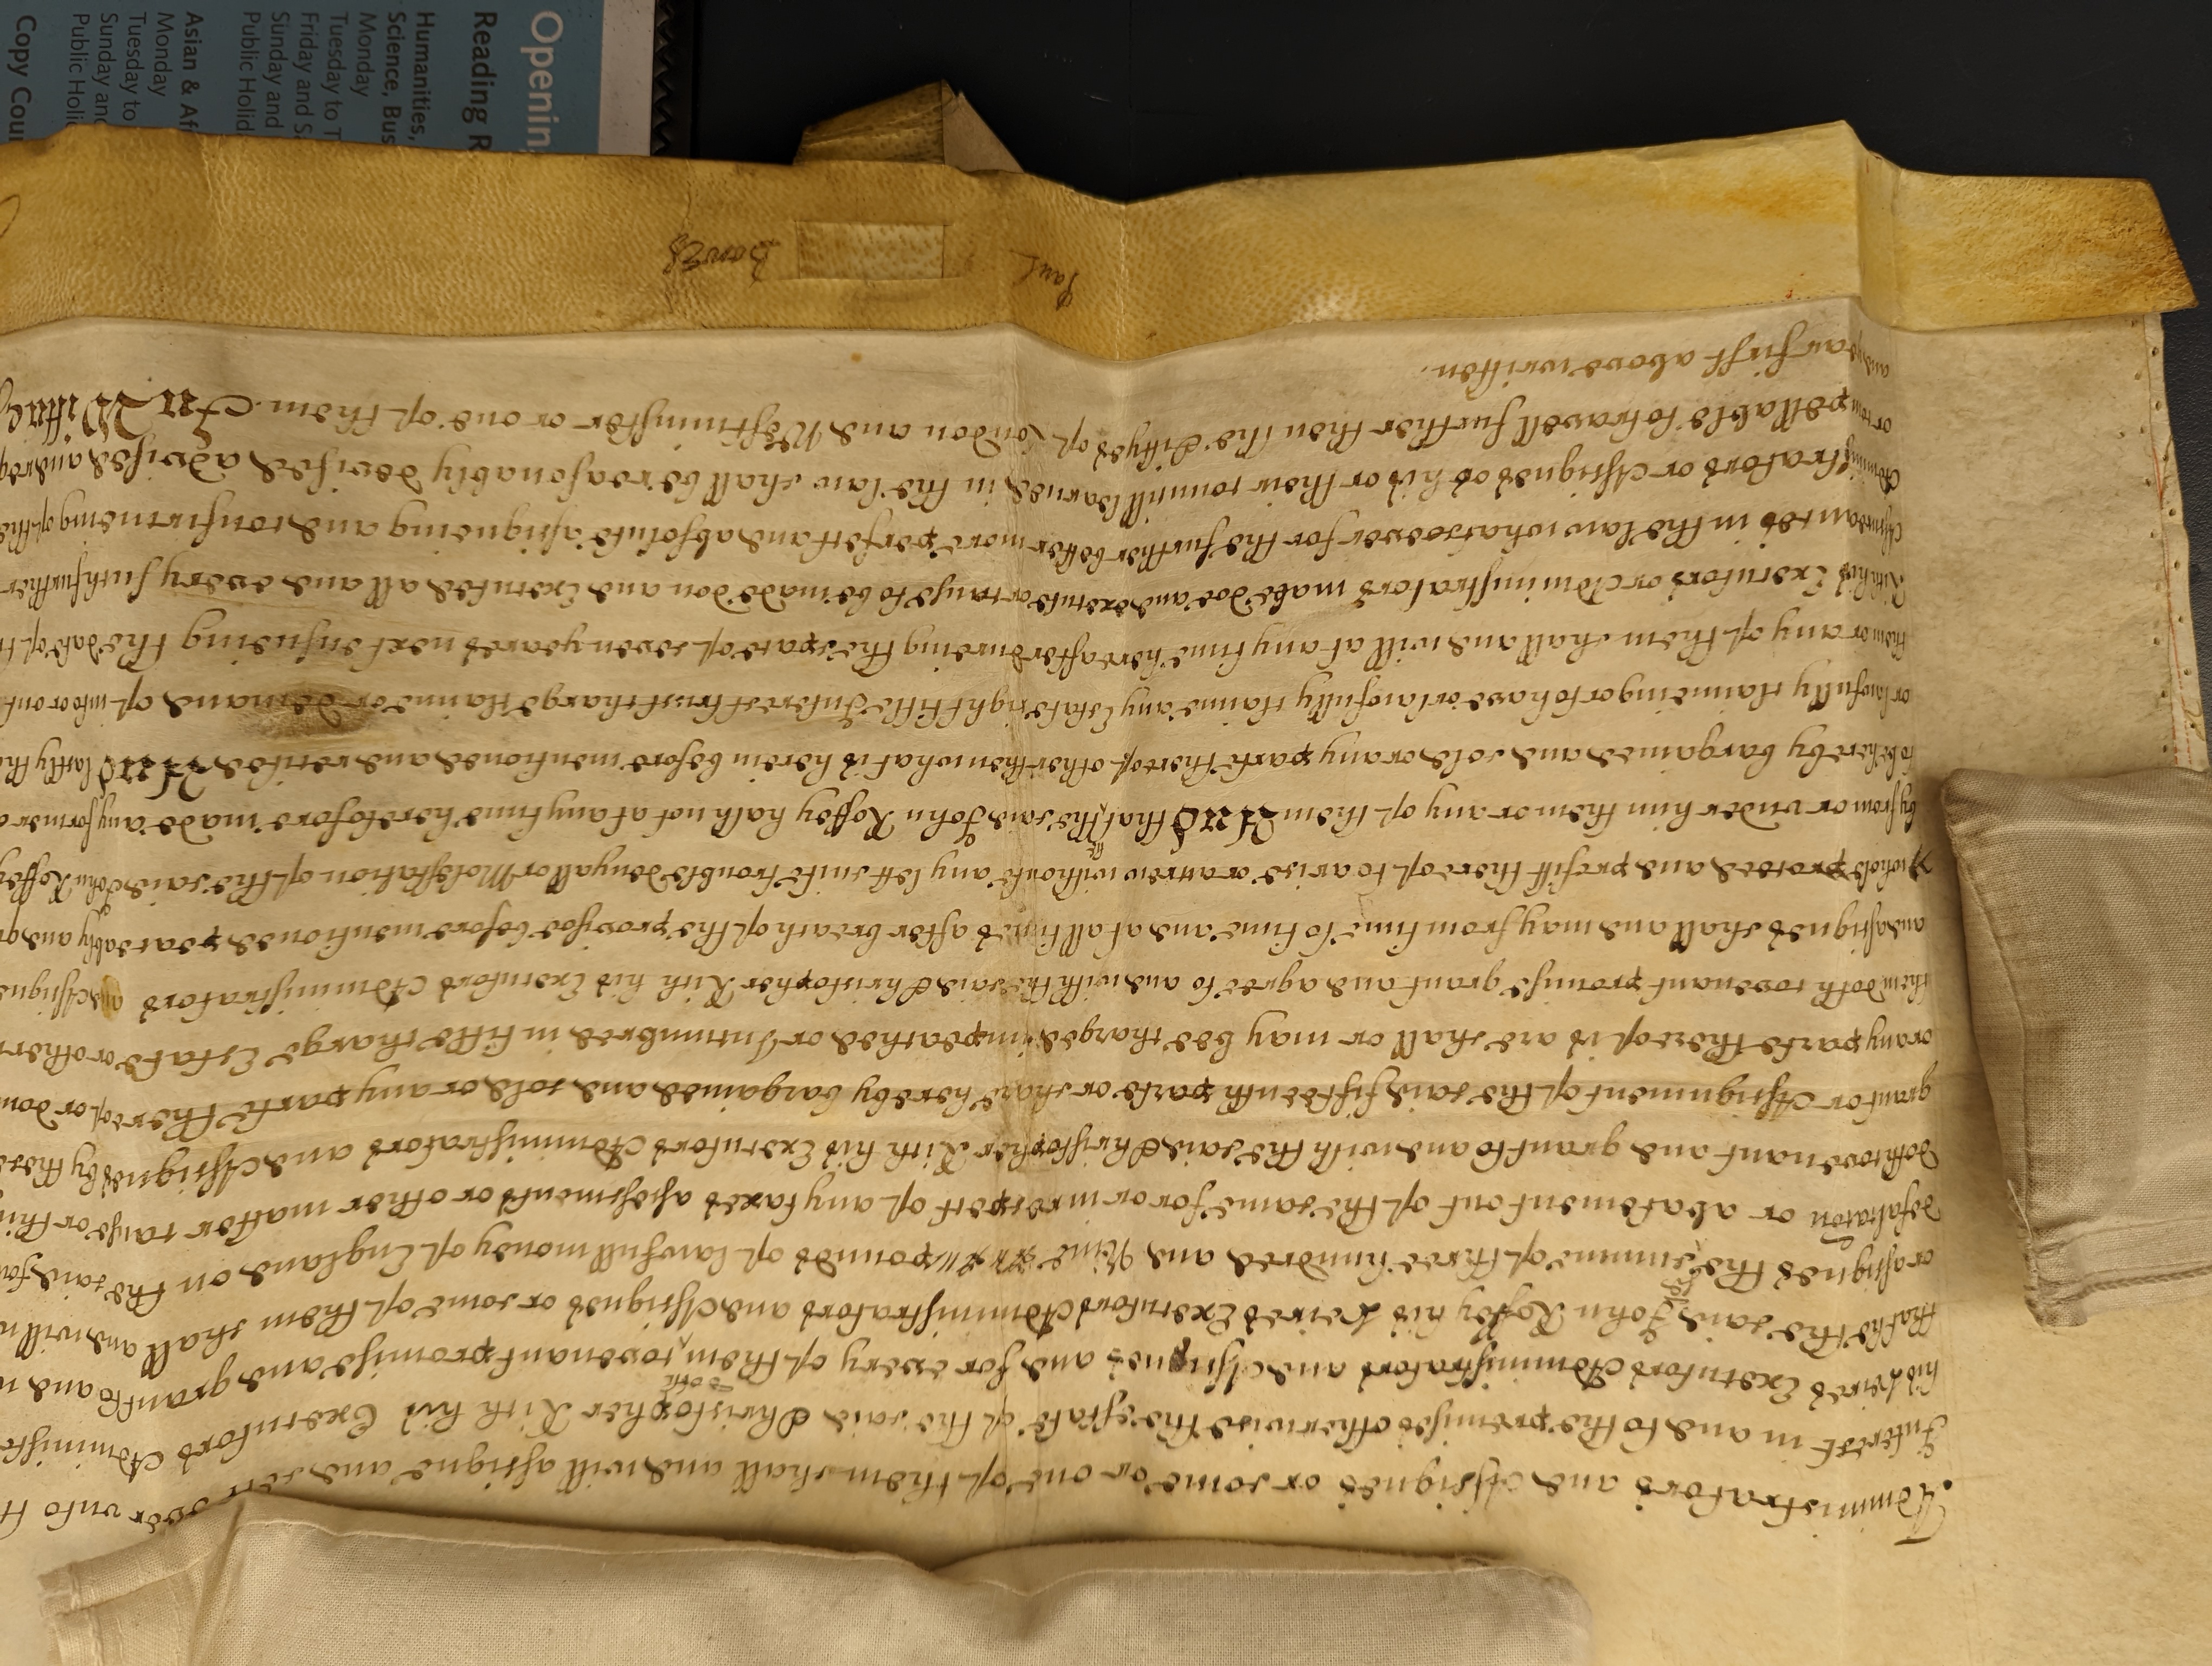 Administrators and Assignes or some or one of them shall and will assigne and sett over unto
Interest in and to the premises otherwise the estate of the said Christopher Kith his Executors Administr
his heires Executors Administrators and Assignes and for every of them covenant promise and graunt to and
doth
that hee the said John Roffey his heires Executors Administrators and Assignes or some of them shall and will
or assignes the summe of three hundred and Nine pounds of lawfull money of England on the said
defalcacon or abatement out of the same for or in respect of any taxes assessments or other matter cause or
doth covenant and grant to and with the said Christopher Kith his Executors Administrators and Assignes by these
grant or Assignment of the said fifteenth parte or share hereby bargained and sold or any parte thereof or
or any parte thereof is are shall or may bee charged impeached or Incumbred in title charge Estate or other
them doth covenant promise grant and agree to and with the said Christopher Kith his Executors Administrators and Assignes
and assignes shall and may from time to time and at all times after breach of the provisoe before mentioned peaceably and
whole proceed and profitt thereof to arise or accrew without any lett suite trouble denyall or Molestation of the said John Roffey
by from or under him them or any of them And that the said John Roffey hath not at any time heretofore made any former
he
to be hereby bargained and sold or any parte thereof other then what is herein before mentioned and recited And lastly
or lawfully claimeing or to have or lawfully claime any Estate right title Interest trust charge claime or demand of into or out
them or any of them shall and will at any time hereafter dureing the space of seven yeares next ensueing the date of
Kith his Executors or Administrators make doe and execute or cause to be made don and Executed all and every such further
Assurances in the law whatsoever for the further better more perfect and absolute assigneing and confirmeing of the
Administrators or Assignes or his or their councill learned in the law shall be reasonably devised advised and
or compellable to travell further then the Cittyes of London and Westminster or one of them In Wittnes
and yeare first above written.
Paul Bowes
Openin
Reading R
Humanities,
Science, Bus
Monday
Tuesday to T
Friday and Sa
Sunday and
Public Holid
Asian & Afr
Monday
Tuesday to
Sunday and
Public Holid
Copy Cou